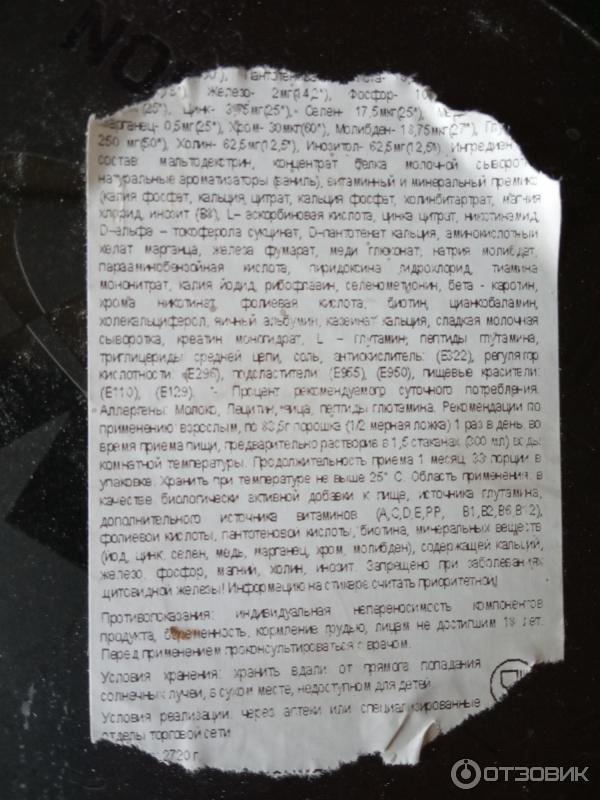 Железо- 2мг(14,2*), Фосфор-
(25*), Цинк- 3,75мг(25*),- Селен- 17,5мкг(25*),
Марганец- 0,5мг(25*), Хром- 30мкг(60*), Молибден- 18,75мкг(27*),
250 мг(50*), Холин- 62,5мг(12,5*), Инозитол- 62,5мг(12,5*). Ингредиен
состав: мальтодекстрин, концентрат белка молочной сыворотк
натуральные ароматизаторы (ваниль), витаминный и минеральный премикс
(калия фосфат, кальция цитрат, кальция фосфат, холинбитартрат, магния
хлорид, инозит (В8), L– аскорбиновая кислота, цинка цитрат, никотинамид,
D–альфа – токоферола сукцинат, D–пантотенат кальция, аминокислотный
хелат марганца, железа фумарат, меди глюконат, натрия молибдат,
парааминобензойная кислота, пиридоксина гидрохлорид, тиамина
мононитрат, калия йодид, рибофлавин, селенометионин, бета - каротин,
хрома никотинат, фолиевая кислота, биотин, цианкобаламин,
холекальциферол, яичный альбумин, казеинат кальция, сладкая молочная
сыворотка, креатин моногидрат, L – глутамин, пептиды глутамина,
триглицериды средней цепи, соль, антиокислитель: (Е322), регулятор
кислотности: (Е296), подсластители: (Е955), (Е950), пищевые красители:
(Е110), (Е129). *- Процент рекомендуемого суточного потребления.
Аллергены: Молоко, Лецитин, яйца, пептиды глютамина. Рекомендации по
применению: взрослым, по 83,5г порошка (1/2 мерная ложка) 1 раз в день, во
время приема пищи, предварительно растворив в 1,5 стаканах (300 мл) воды
комнатной температуры. Продолжительность приема 1 месяц. 33 порции в
упаковке. Хранить при температуре не выше 25° С. Область применения: в
качестве биологически активной добавки к пище, источника глутамина,
дополнительного источника витаминов (A,C,D,E,PP, B1,B2,B6,B12),
фолиевой кислоты, пантотеновой кислоты, биотина, минеральных веществ
(йод, цинк, селен, медь, марганец, хром, молибден), содержащей кальций,
железо, фосфор, магний, холин, инозит. Запрещено при заболеваниях
щитовидной железы! Информацию на стикере считать приоритетной!
Противопоказания: индивидуальная непереносимость компонентов
продукта, беременность, кормление грудью, лицам не достигшим 18 лет.
Перед применением проконсультироваться с врачом.
Условия хранения: хранить вдали от прямого попадания
солнечных лучей, в сухом месте, недоступном для детей.
Условия реализации: через аптеки или специализированные
отделы торговой сети
2720 г
ОТЗОВИК